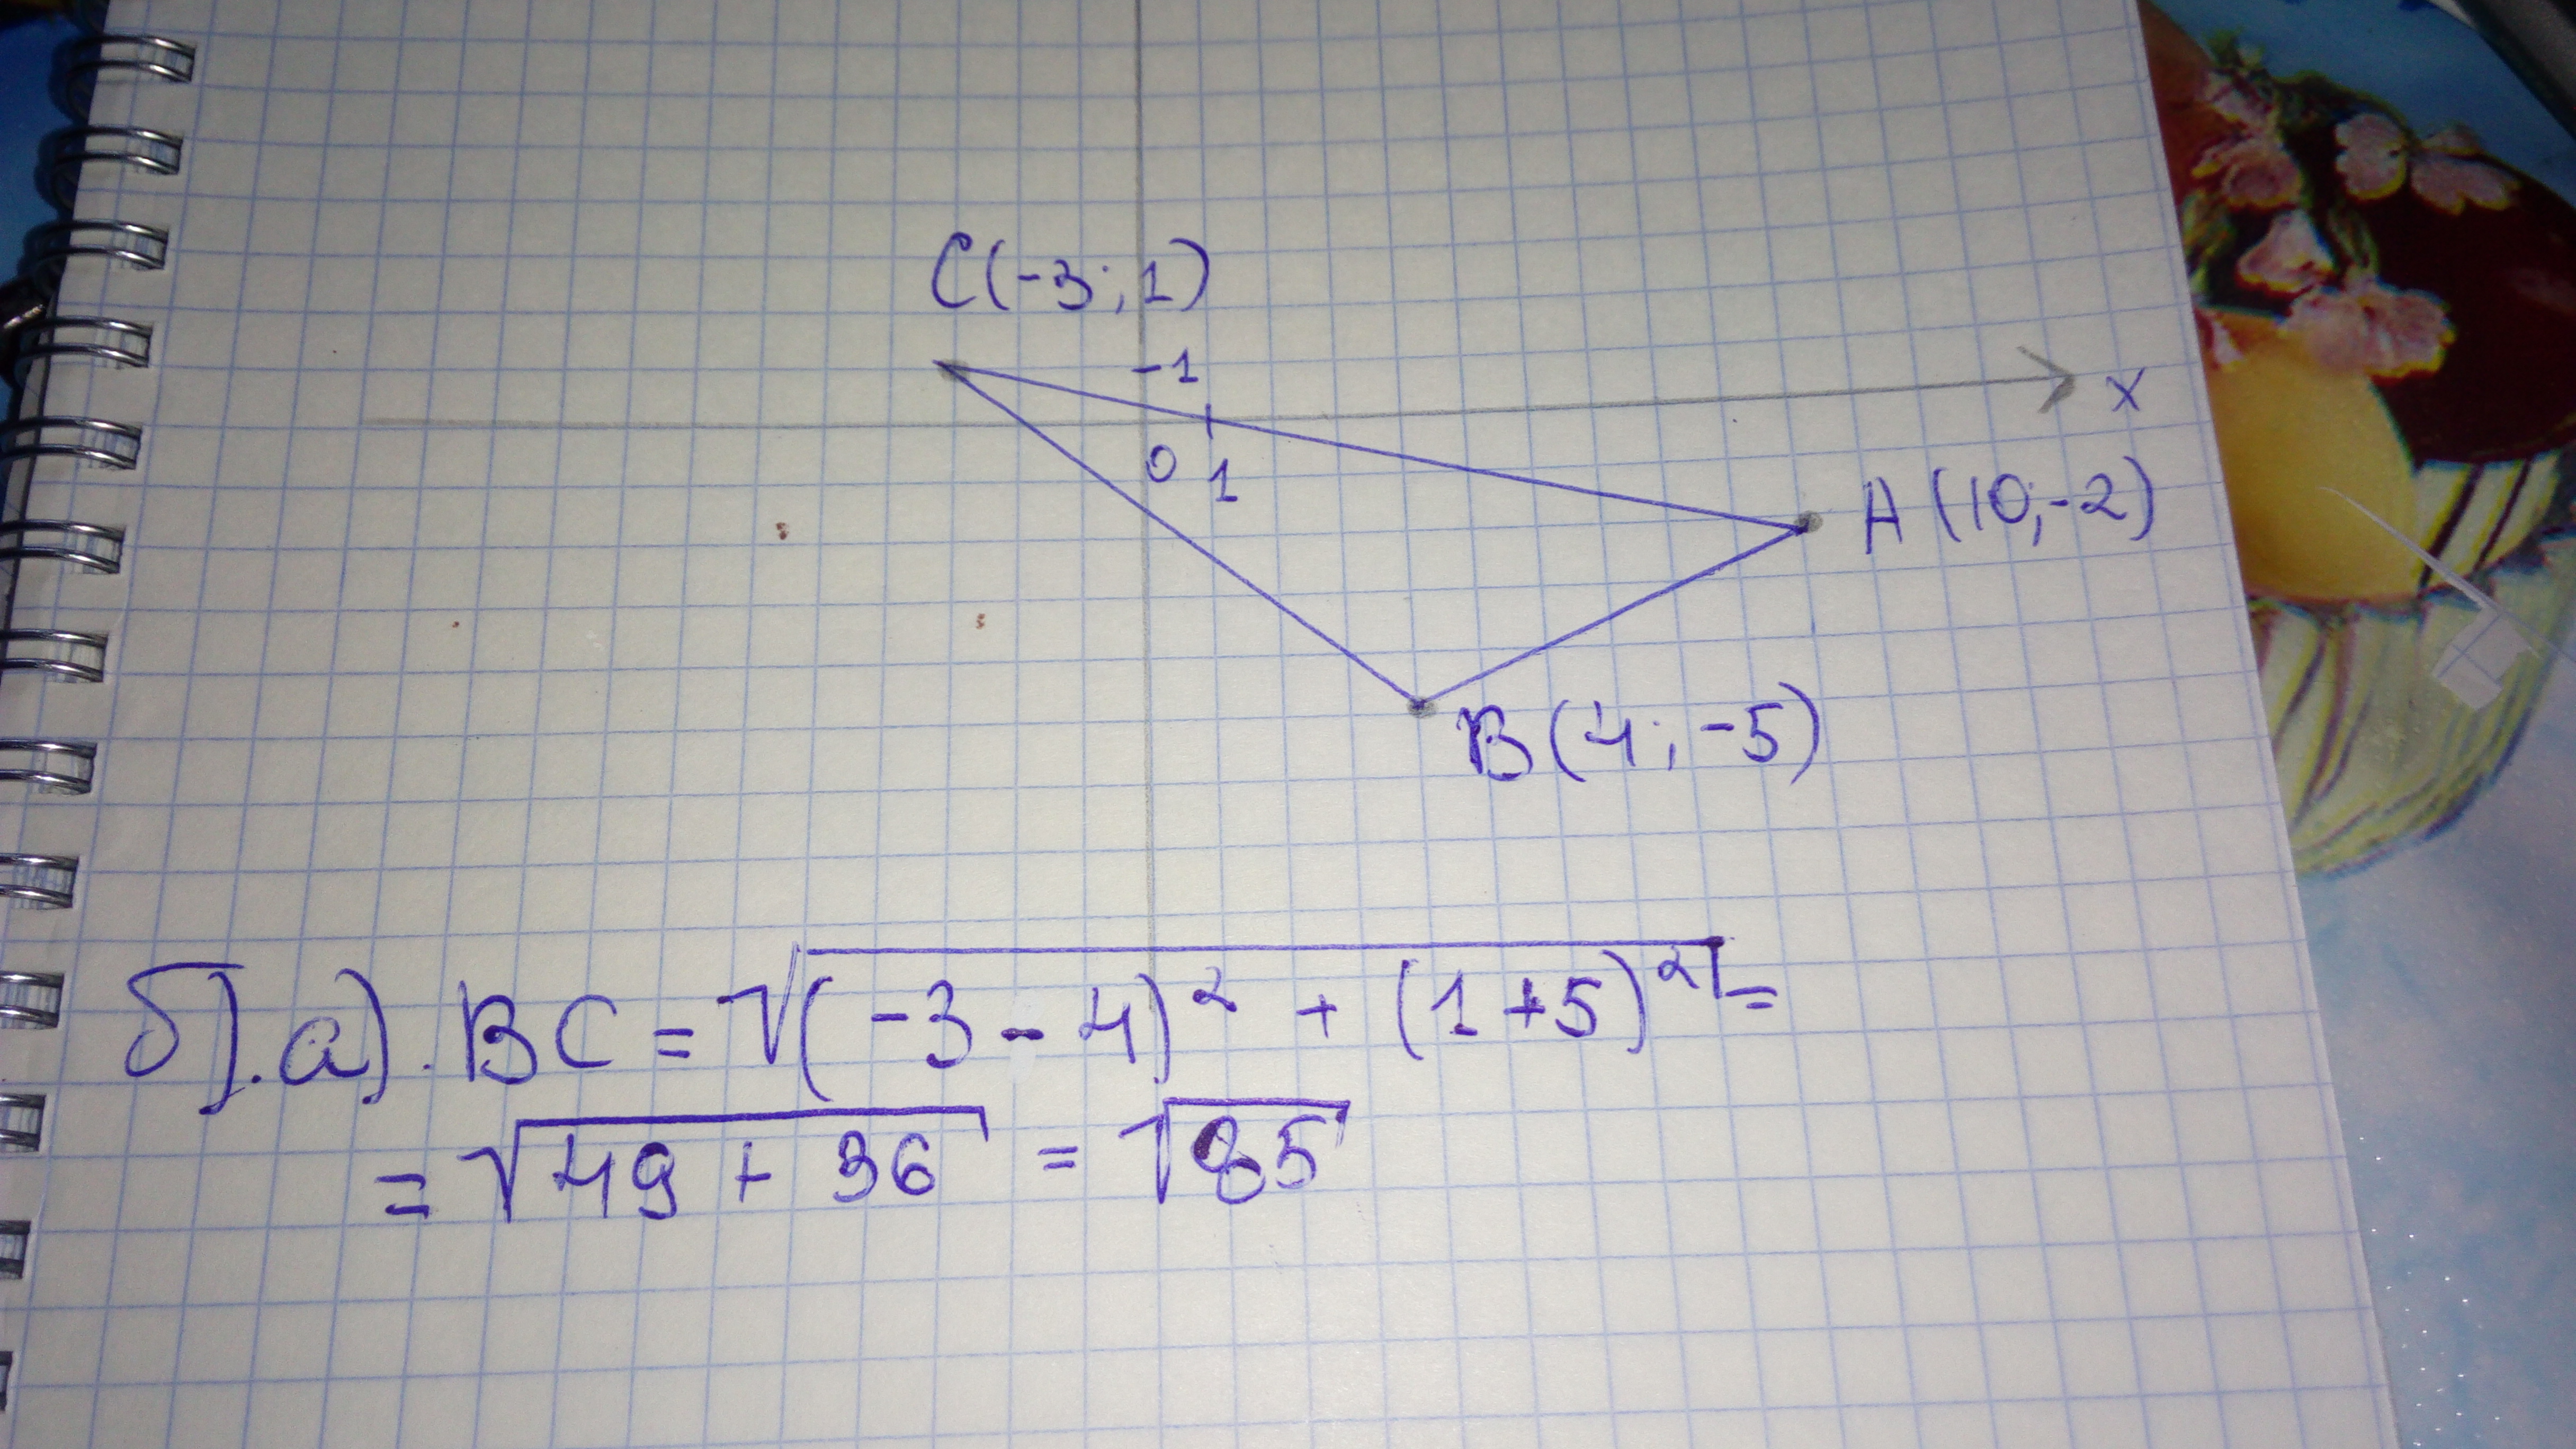 C(-3; 1)
-1
x
0 1
A (10; -2)
B (4; -5)
б).а). BC = √(-3 - 4)² + (1 + 5)² =
= √49 + 36 = √85